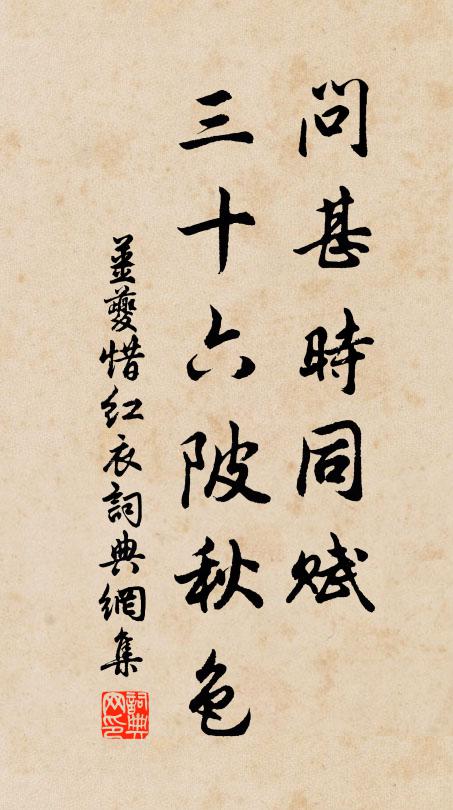 問甚時同賦
三十六陂秋色
姜夔惜红衣詞典網集
詞典网印